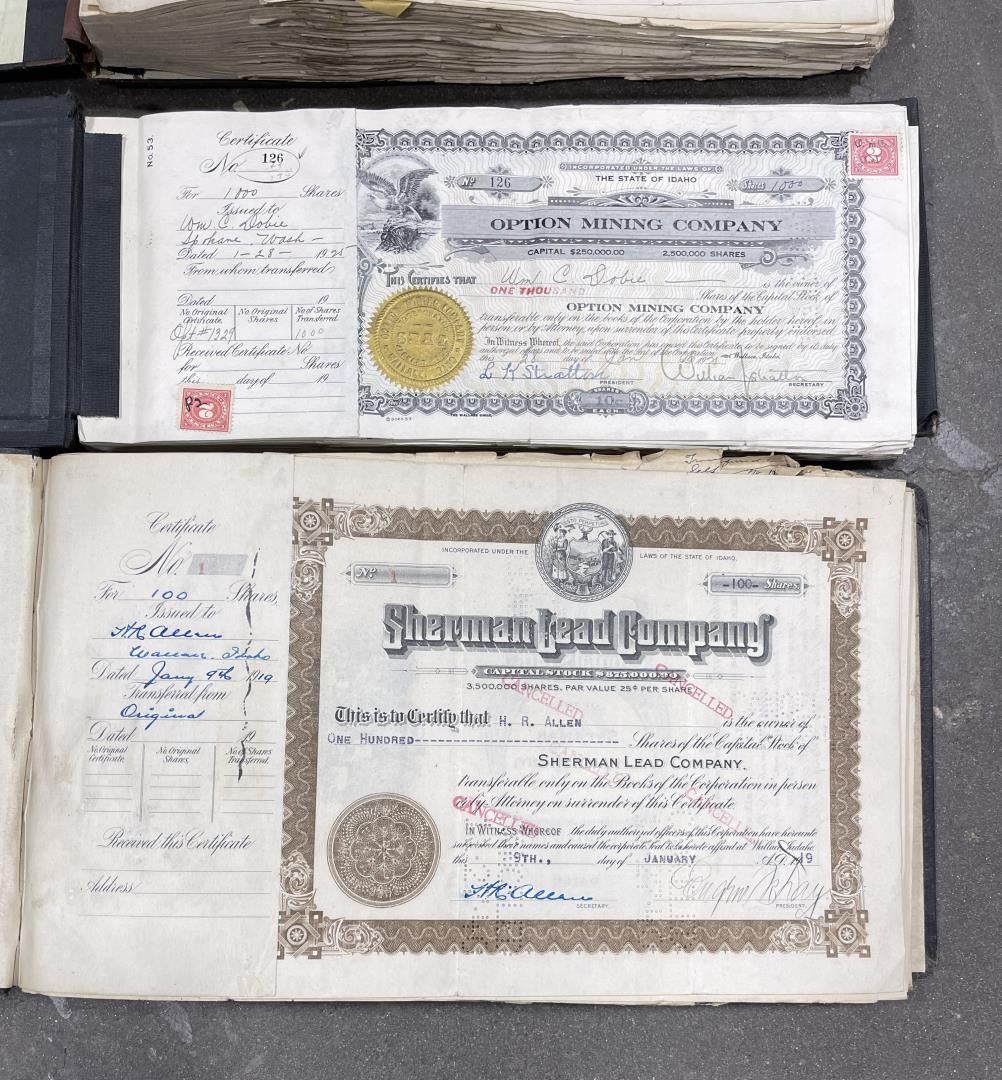 No. 53.
Certificate
No. 126
For 1000 Shares
Issued to
Wm. C. Dobie
Spokane, Wash -
Dated 1-28 1925
From whom transferred
Dated 19
No Original Certificate. No Original Shares. No of Shares Transferred.
1000
Received Certificate No
for Shares
this day of 19
INCORPORATED UNDER THE LAWS OF
THE STATE OF IDAHO
No 126 Shares 1000
OPTION MINING COMPANY
CAPITAL $250,000.00 2,500,000 SHARES
THIS CERTIFIES THAT Wm C. Dobie is the owner of
ONE THOUSAND Shares of the Capital Stock of
OPTION MINING COMPANY
transferable only on the books of the Corporation by the holder hereof in
person or by Attorney, upon surrender of this Certificate properly endorsed.
In Witness Whereof, the said Corporation has caused this Certificate to be signed by its duly
authorized officers and to be sealed with the Seal of the Corporation
at Wallace, Idaho.
this day of
L K Stratton
PRESIDENT SECRETARY
SHARES
10¢
EACH
THE WALLACE MINER
Certificate
No. 1
For 100 Shares,
Issued to
H R Allen
Wallace, Idaho
Dated Jany 9th 1919
Transferred from
Original
Dated 19
No Original Certificate No Original Shares. No. of Shares Transferred.
Received this Certificate
Address
INCORPORATED UNDER THE LAWS OF THE STATE OF IDAHO.
No 1 -100- Shares
Sherman Lead Company
CAPITAL STOCK $875,000.00
3,500,000 SHARES, PAR VALUE 25¢ PER SHARE
CANCELLED CANCELLED
This is to Certify that H. R. ALLEN is the owner of
ONE HUNDRED Shares of the Capital Stock of
SHERMAN LEAD COMPANY.
CANCELLED
transferable only on the Books of the Corporation in person
or by Attorney on surrender of this Certificate
CANCELLED CANCELLED
IN WITNESS WHEREOF the duly authorized officers of this Corporation have hereunto
subscribed their names and caused the corporate Seal to be hereto affixed at Wallace, Idaho
this 9TH., day of JANUARY A.D. 1919
H R Allen
SECRETARY. PRESIDENT.